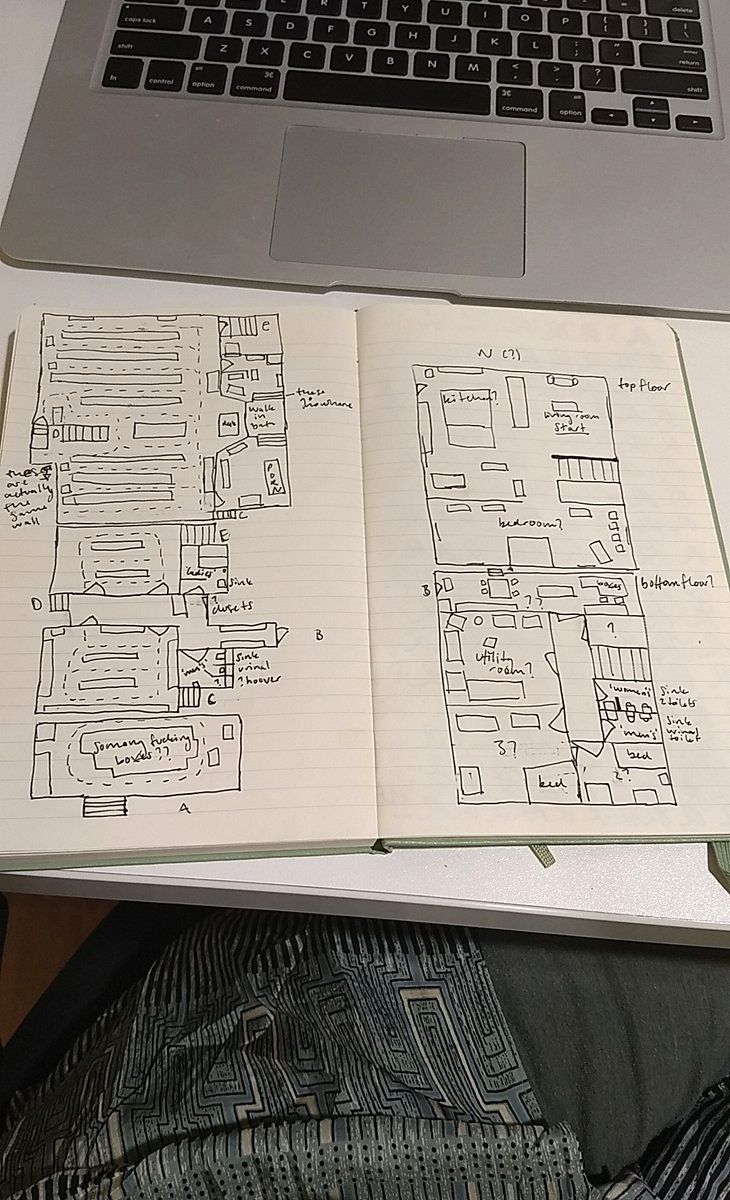 delete
caps lock A S D F G H J K L : ; " ' enter return
shift Z X C V B N M < , > . ? / shift
fn control alt option ⌘ command ⌘ command alt option
R T Y U I O P { [ } ] | \
E
these
walk
in
bath
desk
D
PORN
these
are
actually
the
same
wall
C
E
'ladies'
sink
?
closets
D
B
'men's'
?
sink
urinal
? hoover
C
so many fucking
boxes??
A
N (?)
top floor
kitchen?
living room
start
bedroom?
B
boxes
??
bottom floor?
?
utility
room?
'women's'
sink
2 toilets
'men's'
sink
urinal
toilet
3?
bed
bed
2?